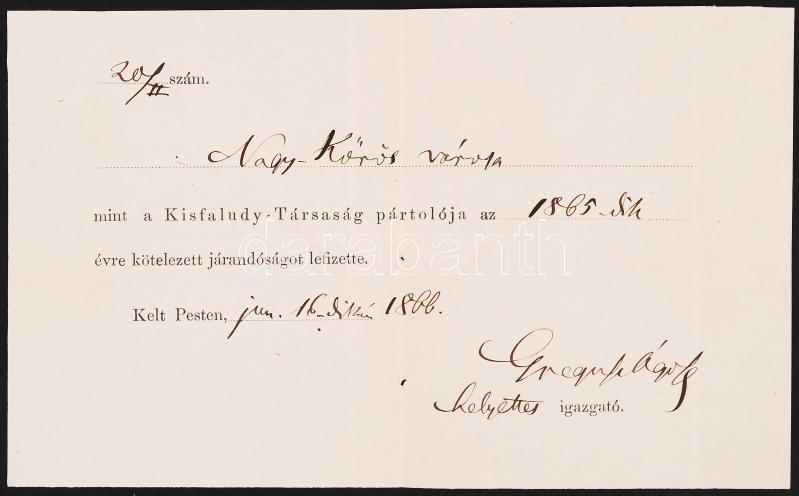 20/II szám.
Nagy-Kőrös városa
mint a Kisfaludy-Társaság pártolója az 1865-dik
évre kötelezett járandóságot lefizette.
darabanth
Kelt Pesten, jun. 16-dikán 1866.
Greguss Ágost
helyettes igazgató.